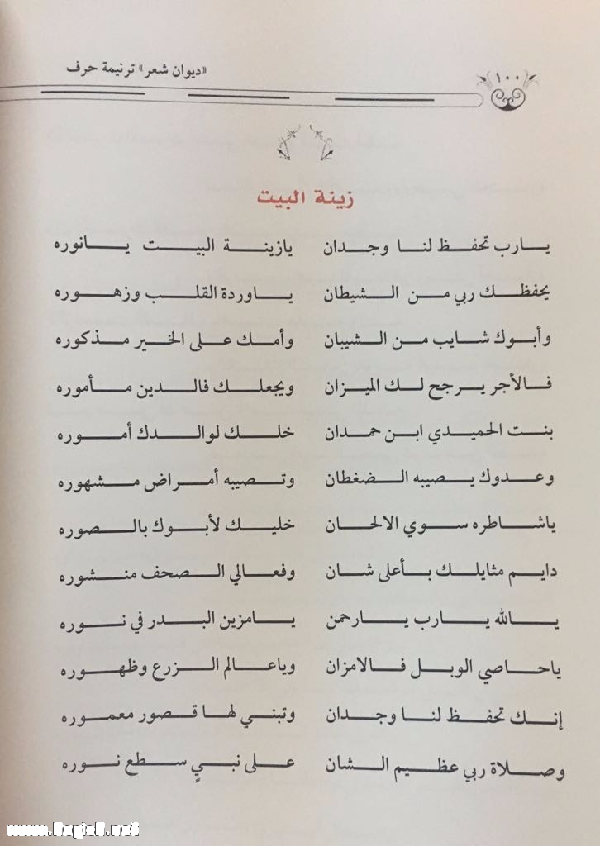 ١٠٠
«ديوان شعر» ترنيمة حرف
زينة البيت
يارب تحفظ لنا وجدان يازينة البيت يانوره
يحفظك ربي من الشيطان ياوردة القلب وزهوره
وأبوك شايب من الشيبان وأمك على الخير مذكوره
فالأجر يرجح لك الميزان ويجعلك فالدين مأموره
بنت الحميدي ابن حمدان خلك لوالدك أموره
وعدوك يصيبه الضغطان وتصيبه أمراض مشهوره
ياشاطره سوي الالحان خليك لأبوك بالصوره
دايم مثايلك بأعلى شان وفعالي الصحف منشوره
يالله يارب يارحمن يامزين البدر في نوره
ياحاصي الوبل فالامزان وياعالم الزرع وظهوره
إنك تحفظ لنا وجدان وتبني لها قصور معموره
وصلاة ربي عظيم الشان على نبيٍ سطع نوره